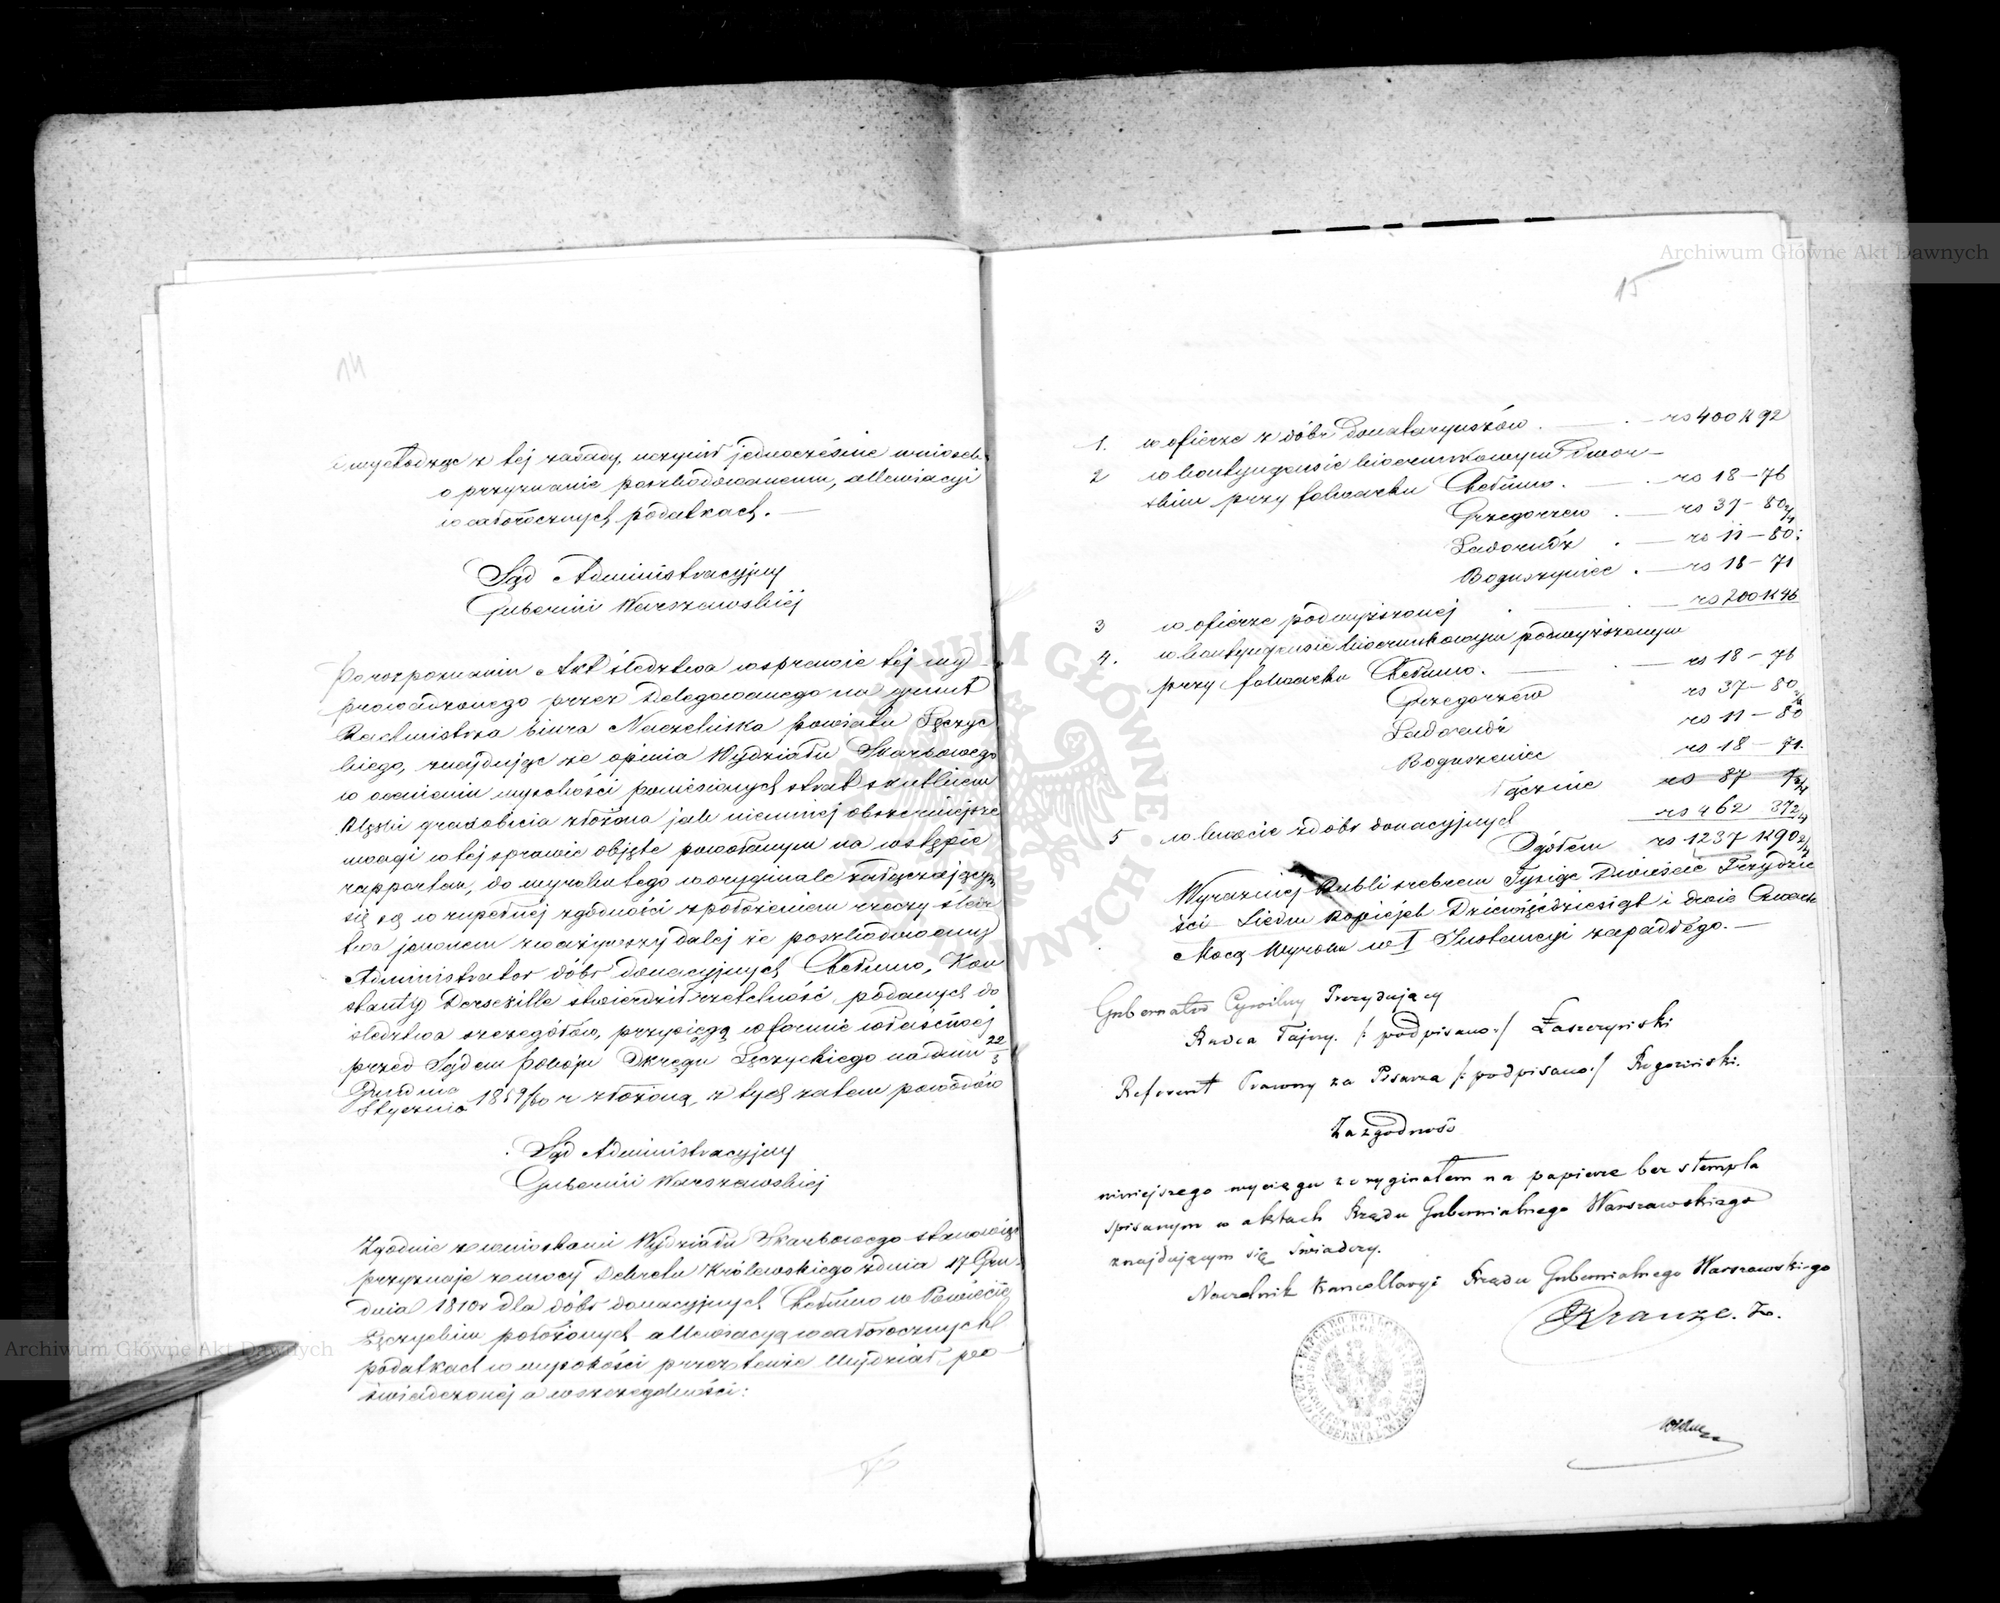 14
i wychodząc z tej zasady, uczynił jednocześnie wniosek
o przyznanie poszkodowanemu, allewiacyi
w całorocznych podatkach. —
Sąd Administracyjny
Gubernii Warszawskiéj
Po rozpoznaniu Akt śledztwa w sprawie tej wy-
prowadzonego przez Delegowanego na grunt
Rachmistrza biura Naczelnika Powiatu Łęczyc
kiego, znajdując że opinia Wydziału Skarbowego
w ocenieniu wysokości poniesionych strat skutkiem
klęski gradobicia złożona jak niemniej obszerniejsze
uwagi w tej sprawie objęte powołanym na wstępie
rapportem, do wyroku tego w oryginale załączającym
się są w zupełnéj zgodności z położeniem rzeczy śledz
twem zważywszy dalej że poszkodowany
Administrator dóbr donacyjnych Chełmno, Kon
stanty stwierdził rzetelność podanych do
śledztwa szczegółów, przysięgą w formie właściwéj
przed Sądem Pokoju Okręgu Łęczyckiego na dniu 22/3
Grudnia
Stycznia 1859/60 r złożoną, z tych zatem powodów
Sąd Administracyjny
Gubernii Warszawskiej
Zgodnie z wnioskami Wydziału Skarbowego stanowiąc
przyznaje z mocy Dekretu Królewskiego z dnia 17 Gru-
dnia 1810r dla dóbr donacyjnych Chełmno w Powiecie
Łęczyckim położonych allewiacyą w całorocznych
podatkach w wysokości przez tenże Wydział po-
świadczonéj a w szczegolności:
15
1. w ofierze z dóbr Donataryuszów . — . — rs 400 k 92
2 w kontyngensie liwerunkowym Dwor-
skim przy folwarku Chełmno. — . — rs 18 — 76
Grzegorzew . — rs 37 — 80 2/4
Ladorudz . — rs 11 — 80
Boguszyniec . — rs 18 — 71
3 w ofierze podwyższonej . — . — rs 200 k 46
4. w kontyngensie liwerunkowym podwyższonym
przy folwarku Chełmno. — . — rs 18 — 76
Grzegorzew rs 37 — 80
Ladorudz rs 11 — 80
Boguszeniec rs 18 — 71.
Łącznie rs 87
5 w kwocie z dóbr donacyjnych rs 462 37 2/4
Ogółem rs 1237 k 90 2/4
Wyraźniej Rubli srebrem Tysiąc Dwieście Trzydzie
ści Siedm Kopiejek Dziewięćdziesiąt i dwie Czwarte
Mocą Wyroku w I Instancyi zapadłego. —
Gubernator Cywilny Prezydujący
Radca Tajny. /: podpisano :/ Łaszczyński
Referent Prawny za Pisarza /: podpisano :/ Rogoziński.
Za zgodność
niniejszego wyciągu z oryginałem na papierze bez stempla
spisanym w aktach Rządu Gubernialnego Warszawskiego
znajdującym się świadczy.
Naczelnik Kancellaryi Rządu Gubernialnego Warszawskiego
Kranze.
Archiwum Główne Akt Dawnych
Archiwum Główne Akt Dawnych